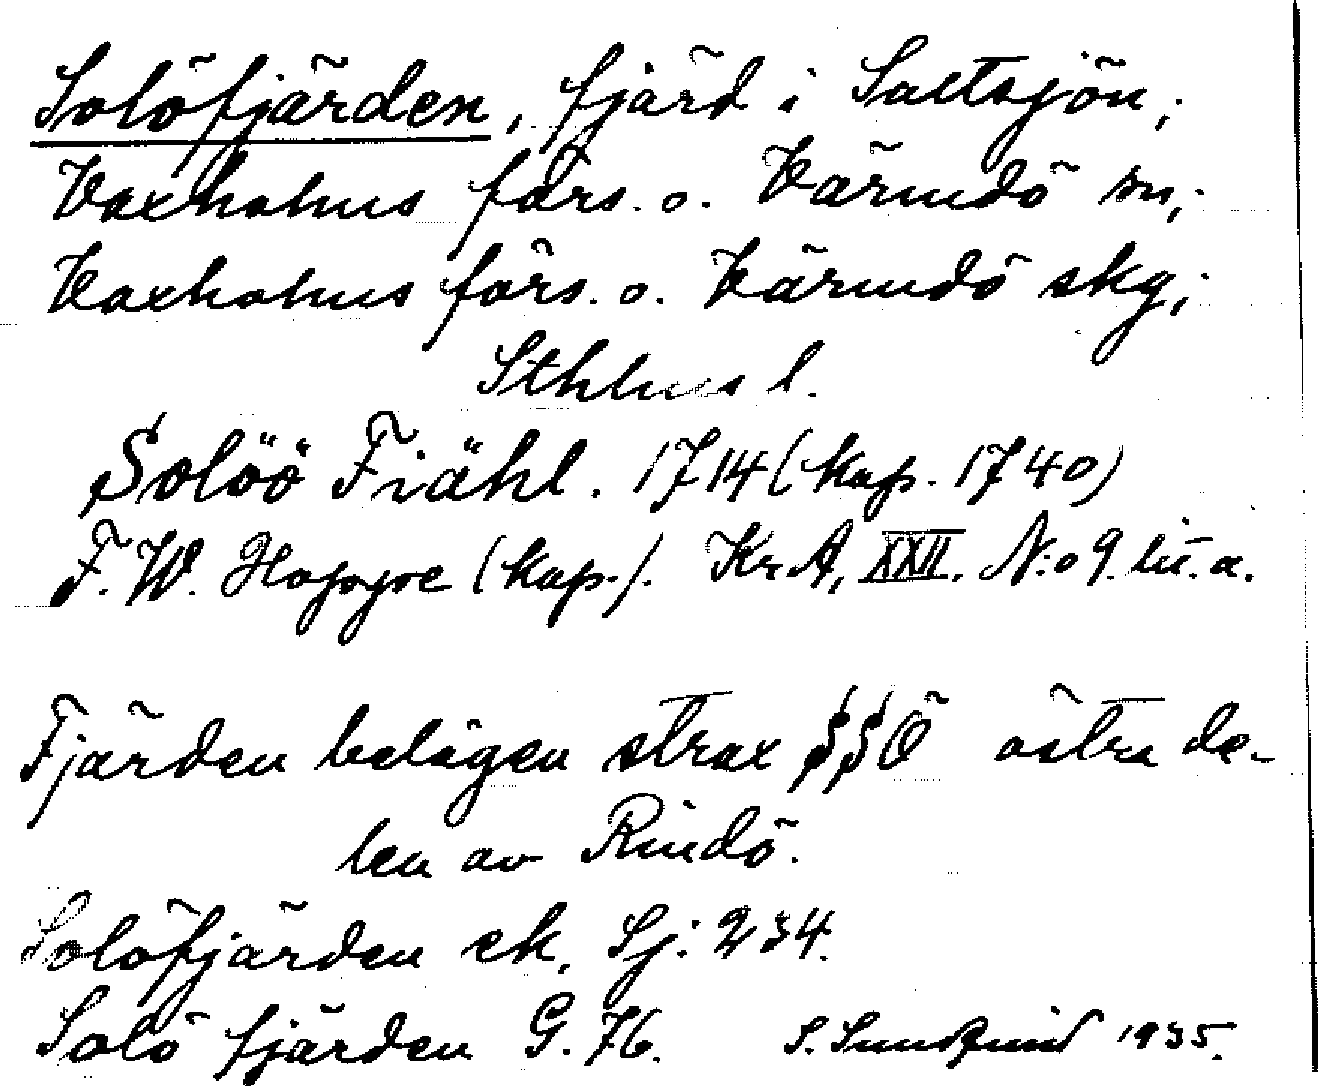 Solöfjärden, fjärd i Saltsjön;
Vaxholms förs. o. Värmdö sn;
Vaxholms förs. o. Värmdö skg;
Sthlms l.
Solöö Fiähl. 1714 (kop. 1740)
F. W. Hoppe (kop.). Kr A, XXII. N:o 9. lit. a.
Fjärden belägen strax SSÖ östra de-
len av Rindö.
Solöfjärden ek. Sj: 234.
Solö fjärden G. 76. S. Sundqvist 1935.